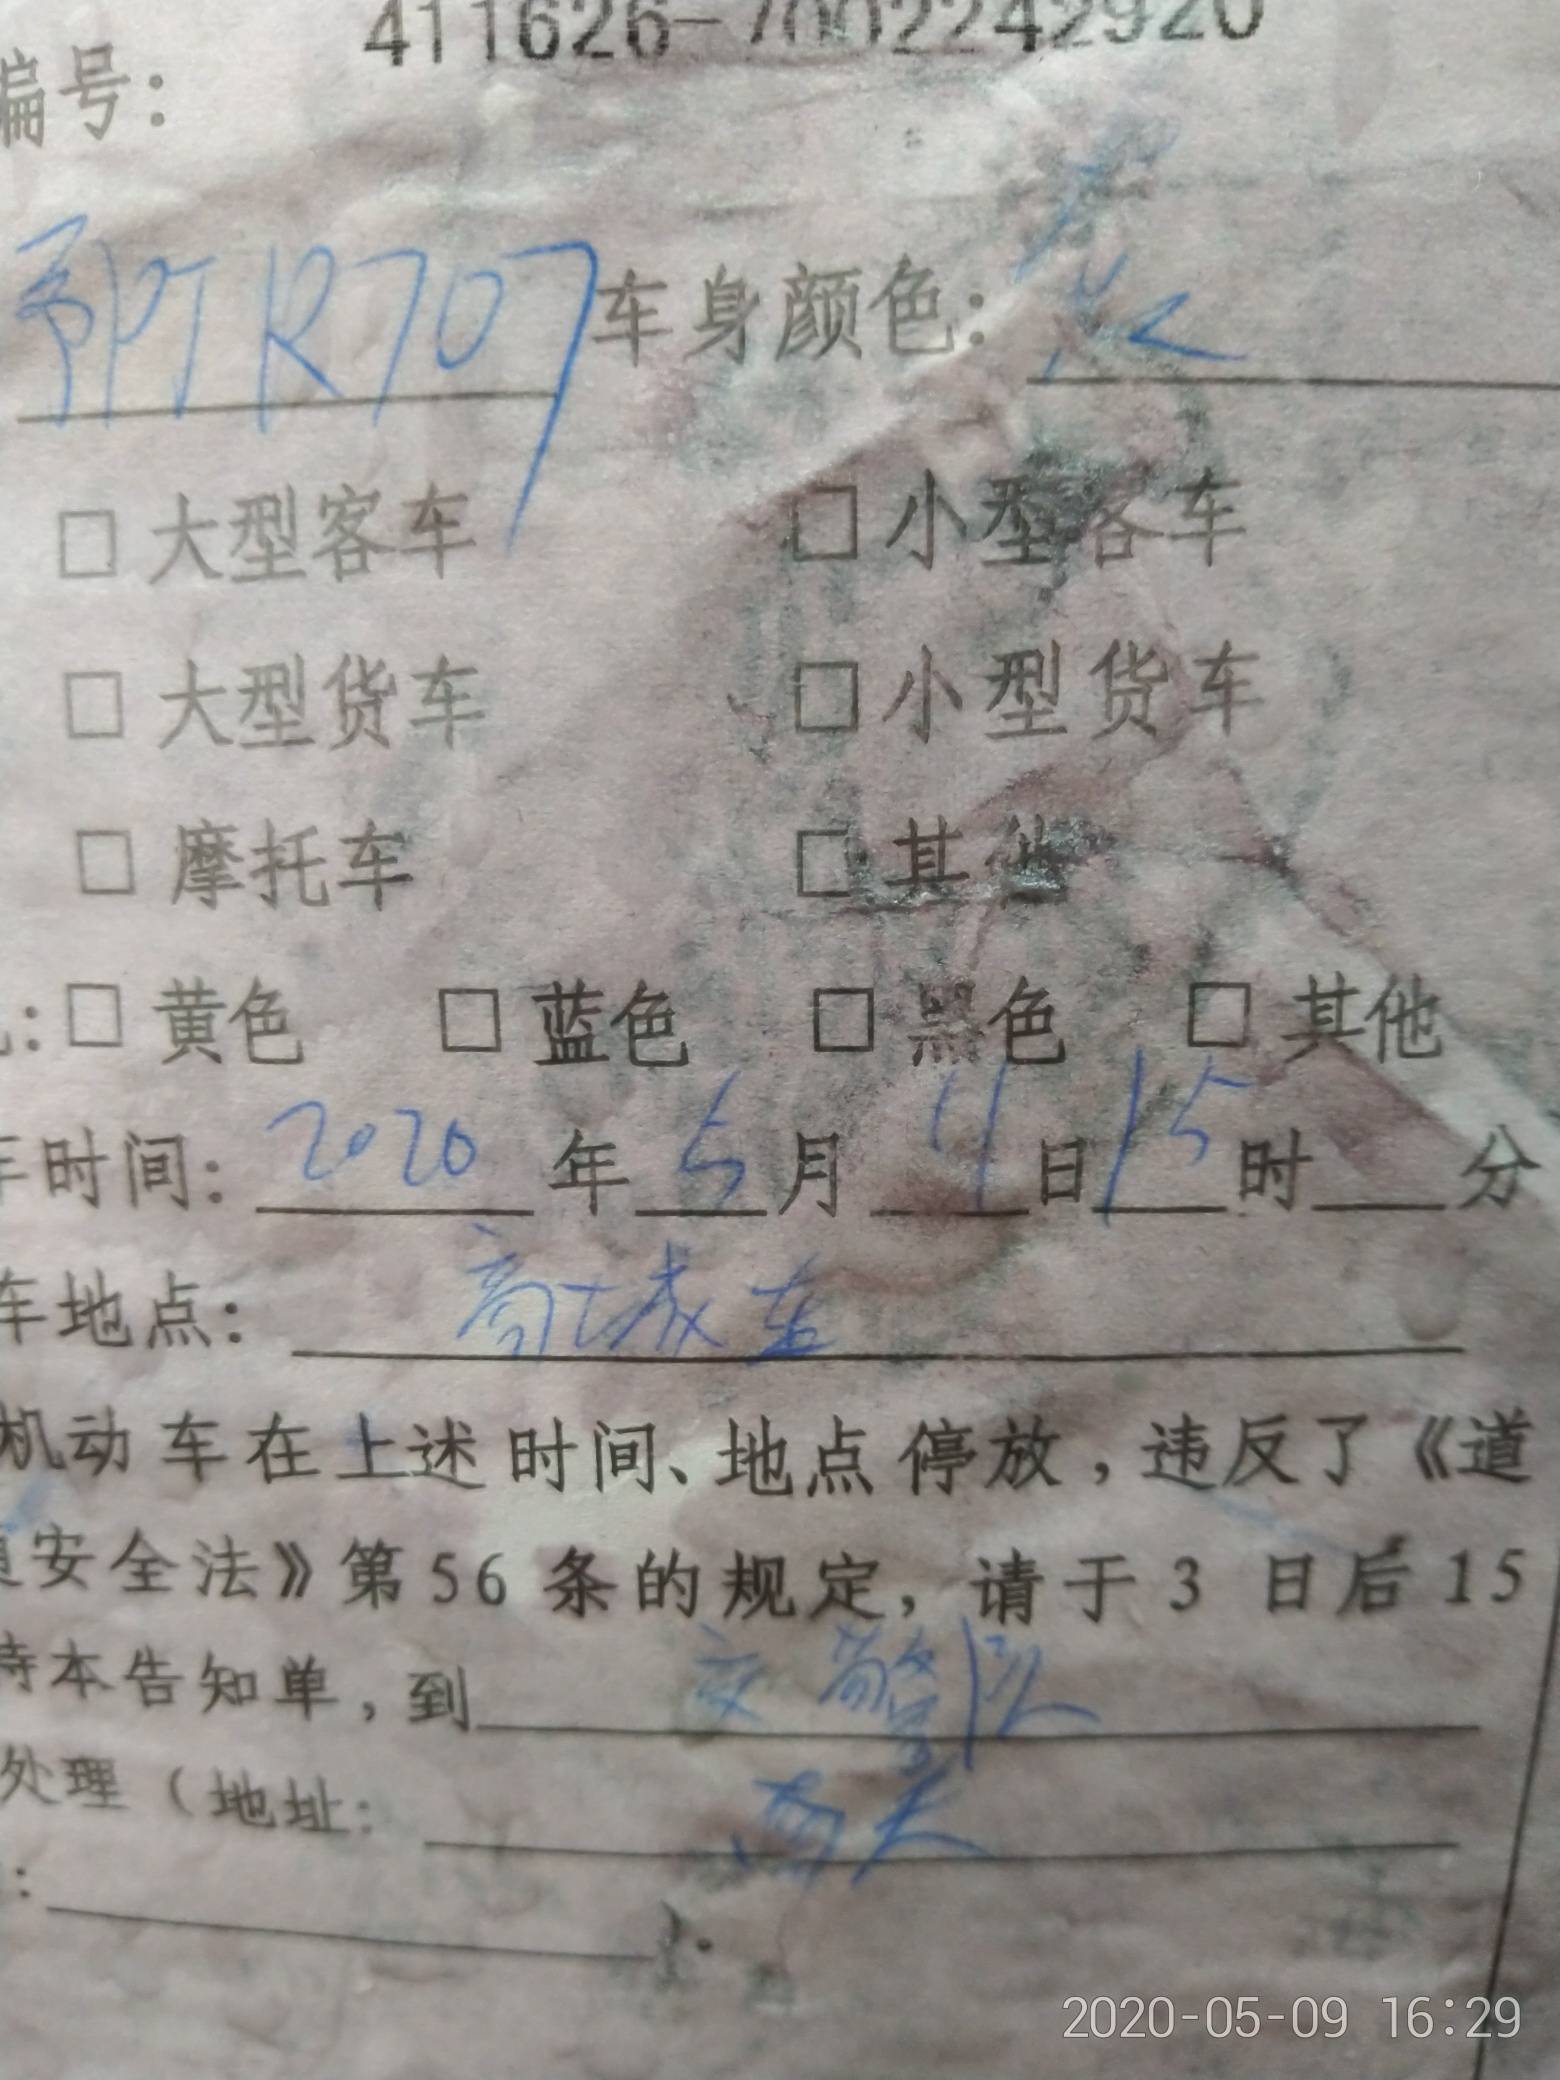 411626-7002242920
编号：
豫PTR707 车身颜色：
□ 大型客车 □ 小型客车
□ 大型货车 □ 小型货车
□ 摩托车 □ 其他
：□ 黄色 □ 蓝色 □ 黑色 □ 其他
车时间：2020年5月 日15时 分
车地点：商城东
机动车在上述时间、地点停放，违反了《道
通安全法》第56条的规定，请于3 日后15
持本告知单，到 交警队
处理（地址：
：
2020-05-09 16:29